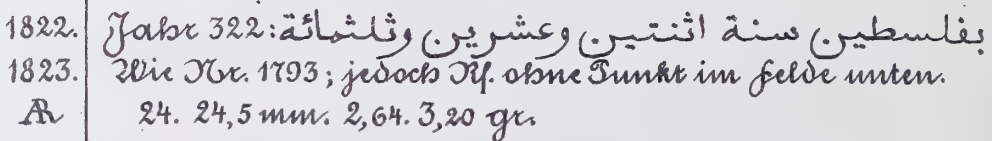 1822. Jahr 322: بفلسطين سنة اثنتين وعشرين وثلثمائة
1823. Wie Nr. 1793; jedoch Rf. ohne Punkt im Felde unten.
AR 24. 24,5 mm. 2,64. 3,20 gr.